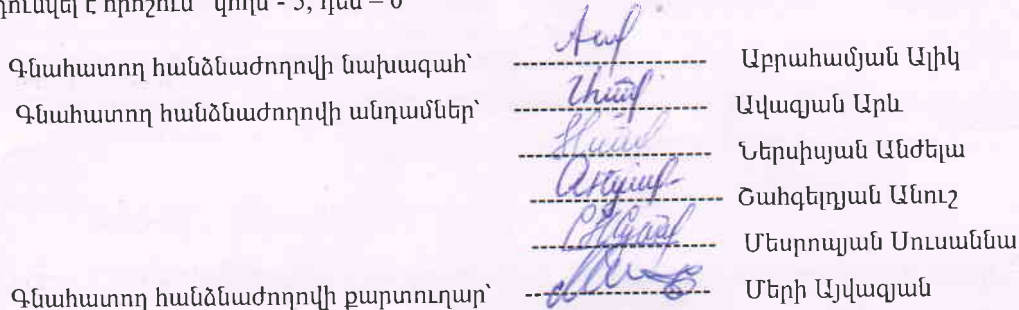 դունվել է որոշում՝ կողմ - 5, դեմ – 0
Գնահատող հանձնաժողովի նախագահ՝ Աբրահամյան Ալիկ
Գնահատող հանձնաժողովի անդամներ՝ Ավագյան Արև
Ներսիսյան Անժելա
Շահգելդյան Անուշ
Մեսրոպյան Սուսաննա
Գնահատող հանձնաժողովի քարտուղար՝ Մերի Այվազյան